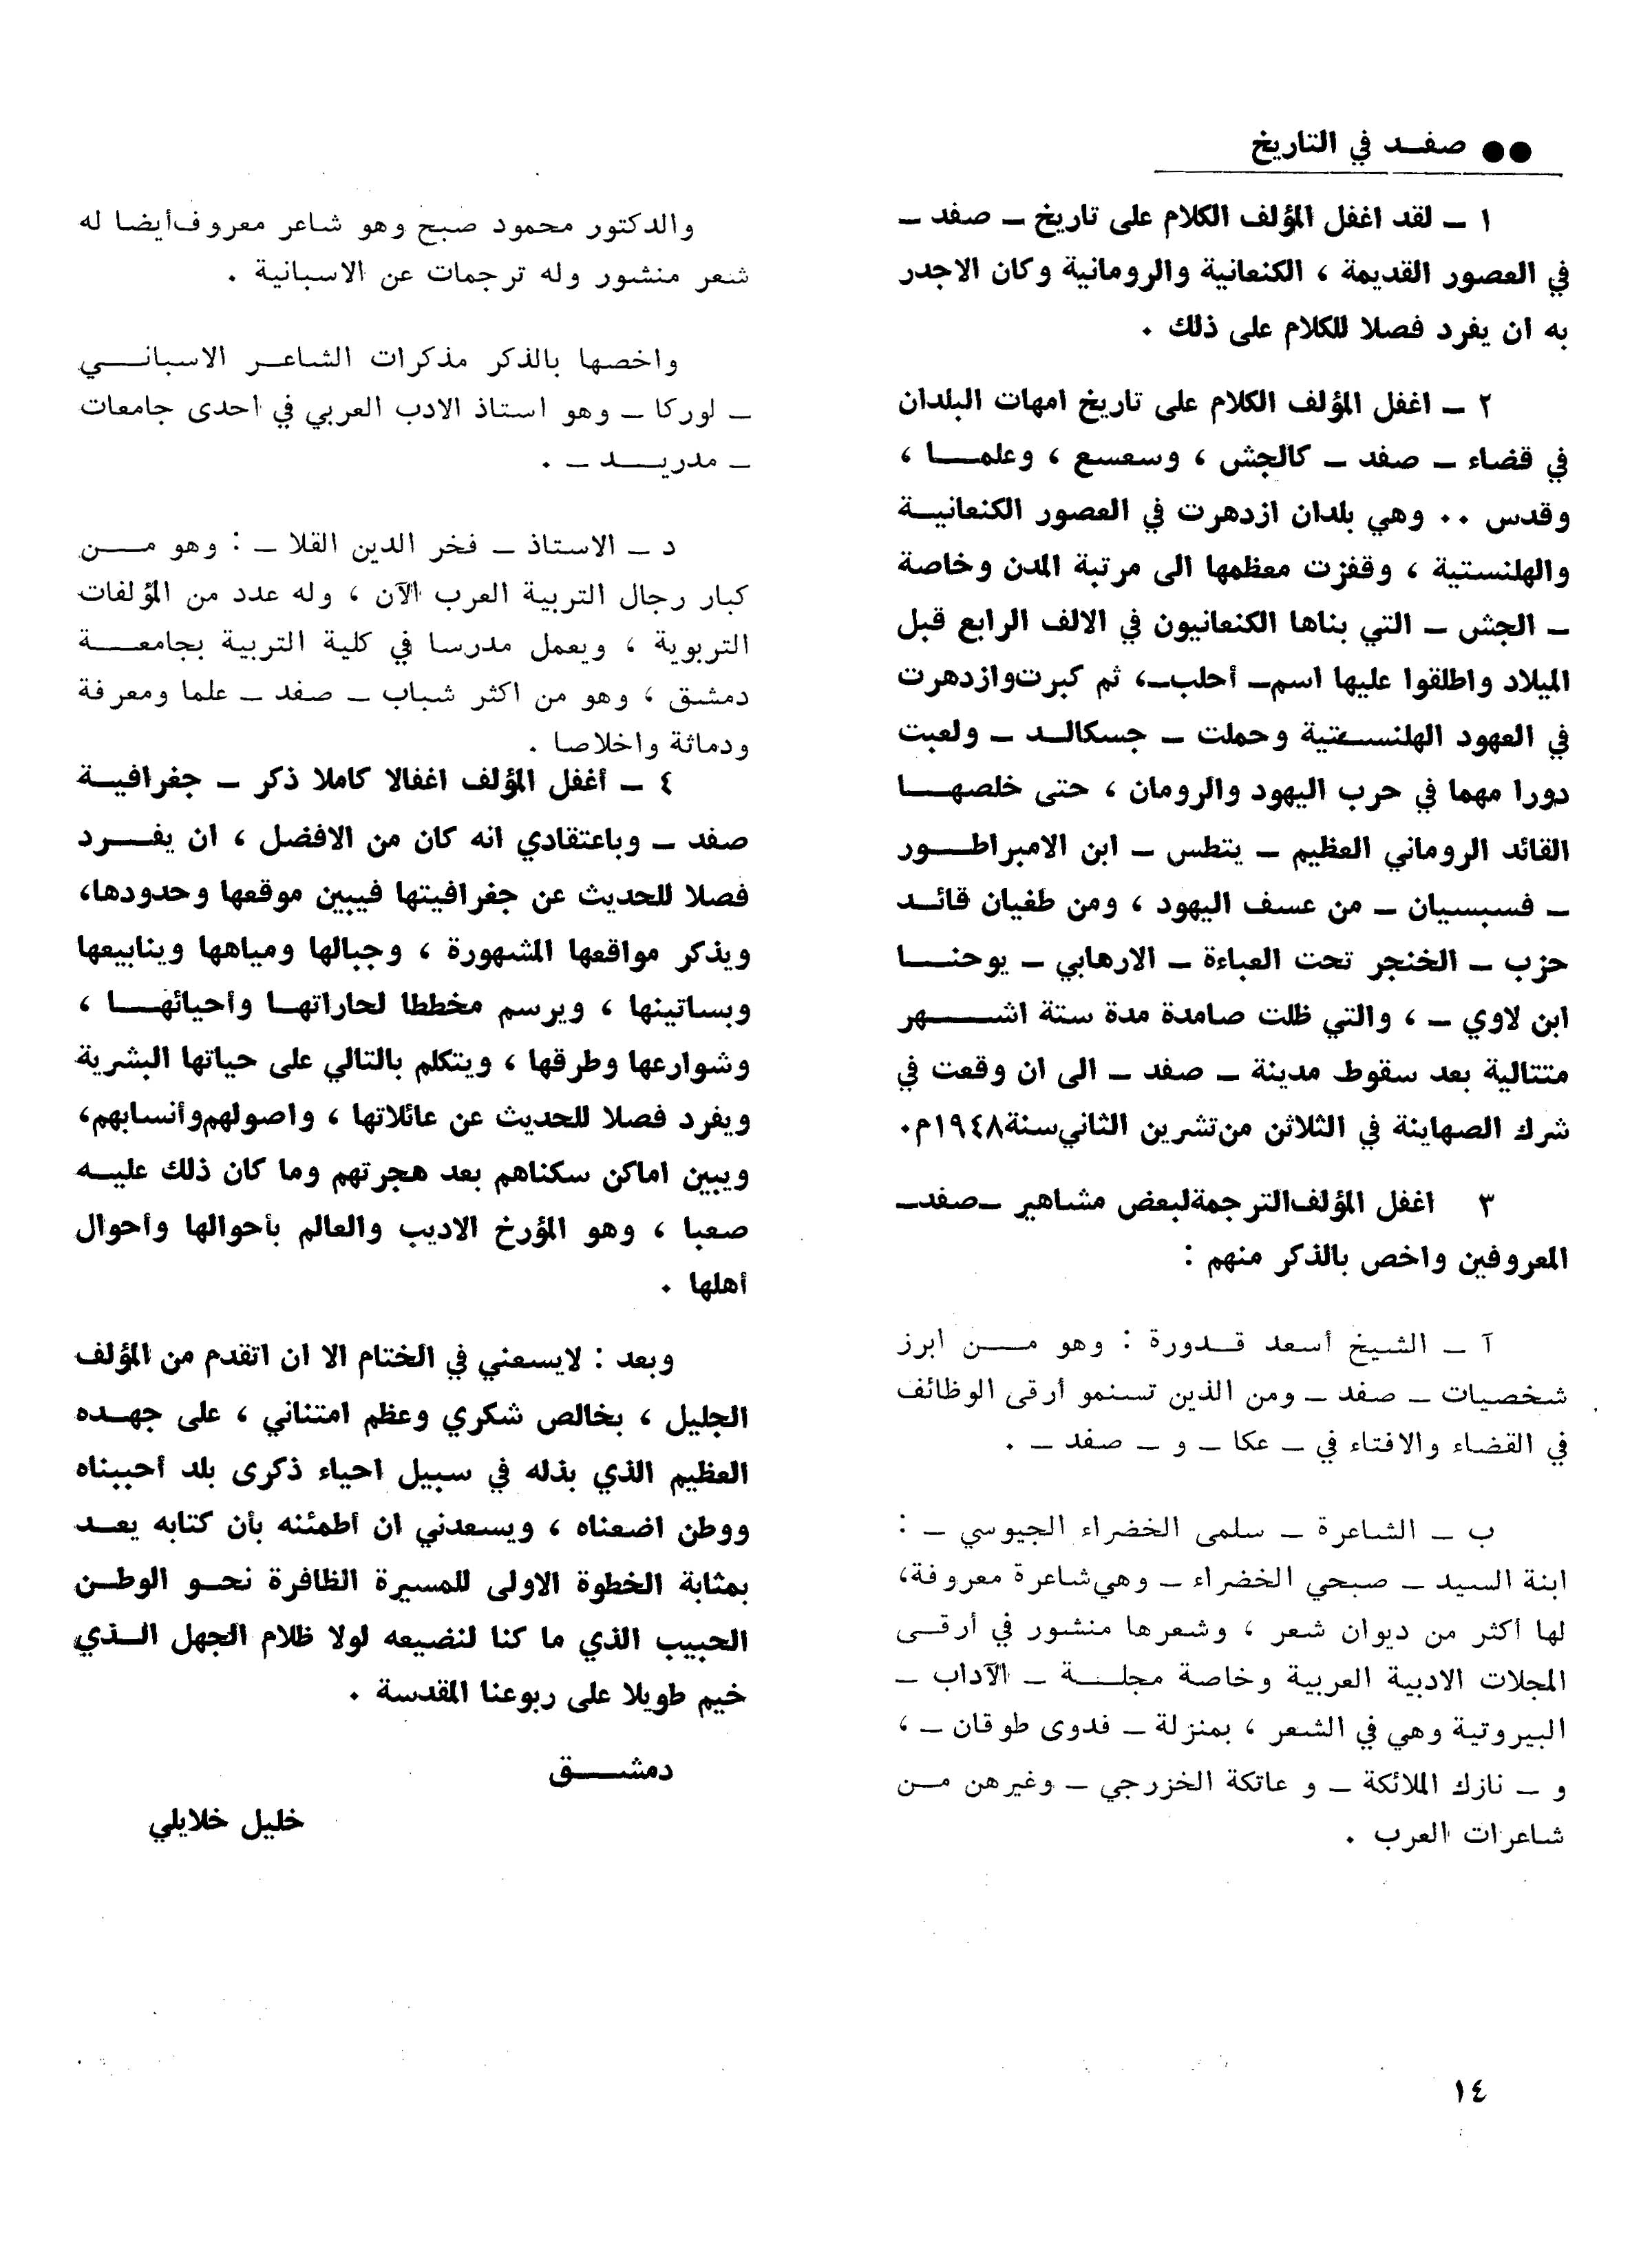 ●● صفـد في التاريخ
١ ـ لقد اغفل المؤلف الكلام على تاريخ ـ صفد ـ
في العصور القديمة ، الكنعانية والرومانية وكان الاجدر
به ان يفرد فصلا للكلام على ذلك .
٢ ـ اغفل المؤلف الكلام على تاريخ امهات البلدان
في قضاء ـ صفد ـ كالجش ، وسعسع ، وعلمـــا ،
وقدس .. وهي بلدان ازدهرت في العصور الكنعانيـة
والهلنستية ، وقفزت معظمها الى مرتبة المدن وخاصة
ـ الجش ـ التي بناها الكنعانيون في الالف الرابع قبل
الميلاد واطلقوا عليها اسم ـ أحلب ـ، ثم كبرت وازدهرت
في العهود الهلنسـتية وحملت ـ جسكالـد ـ ولعبت
دورا مهما في حرب اليهود والرومان ، حتى خلصهــا
القائد الروماني العظيم ـ يتطس ـ ابن الامبراطــور
ـ فسبسيان ـ من عسف اليهود ، ومن طغيان قائـد
حزب ـ الخنجر تحت العباءة ـ الارهابي ـ يوحنــا
ابن لاوي ـ ، والتي ظلت صامدة مدة ستة اشــهر
متتالية بعد سقوط مدينة ـ صفد ـ الى ان وقعت في
شرك الصهاينة في الثلاثن من تشرين الثاني سنة ١٩٤٨م.
٣ اغفل المؤلف الترجمة لبعض مشاهير ـ صفد ـ
المعروفين واخص بالذكر منهم :
آ ـ الشيخ أسعد قـدورة : وهو مــن ابرز
شخصيات ـ صفد ـ ومن الذين تسنمو أرقى الوظائف
في القضاء والافتاء في ـ عكا ـ و ـ صفد ـ .
ب ـ الشاعرة ـ سلمى الخضراء الجيوسي ـ :
ابنة السيد ـ صبحي الخضراء ـ وهي شاعرة معروفة،
لها أكثر من ديوان شعر ، وشعرها منشور في أرقـى
المجلات الادبية العربية وخاصة مجلـــة ـ الآداب ـ
البيروتية وهي في الشعر ، بمنزلة ـ فدوى طوقان ـ ،
و ـ نازك الملائكة ـ و عاتكة الخزرجي ـ وغيرهن مـن
شاعرات العرب .
والدكتور محمود صبح وهو شاعر معروف أيضا له
شعر منشور وله ترجمات عن الاسبانية .
واخصها بالذكر مذكرات الشاعـر الاسبانـــي
ـ لوركا ـ وهو استاذ الادب العربي في احدى جامعات
ـ مدريــد ـ .
د ـ الاستاذ ـ فخر الدين القلا ـ : وهو مــن
كبار رجال التربية العرب الآن ، وله عدد من المؤلفات
التربوية ، ويعمل مدرسا في كلية التربية بجامعــة
دمشق ، وهو من اكثر شباب ـ صفد ـ علما ومعرفة
ودماثة واخلاصا .
٤ ـ أغفل المؤلف اغفالا كاملا ذكر ـ جغرافيـة
صفد ـ وباعتقادي انه كان من الافضل ، ان يفــرد
فصلا للحديث عن جغرافيتها فيبين موقعها وحدودها،
ويذكر مواقعها المشهورة ، وجبالها ومياهها وينابيعها
وبساتينها ، ويرسم مخططا لحاراتهـا وأحيائهـــا ،
وشوارعها وطرقها ، ويتكلم بالتالي على حياتها البشرية
ويفرد فصلا للحديث عن عائلاتها ، واصولهم وأنسابهم،
ويبين اماكن سكناهم بعد هجرتهم وما كان ذلك عليـه
صعبا ، وهو المؤرخ الاديب والعالم بأحوالها وأحوال
أهلها .
وبعد : لايسعني في الختام الا ان اتقدم من المؤلف
الجليل ، بخالص شكري وعظم امتناني ، على جهـده
العظيم الذي بذله في سبيل احياء ذكرى بلد أحببناه
ووطن اضعناه ، ويسعدني ان أطمئنه بأن كتابه يعـد
بمثابة الخطوة الاولى للمسيرة الظافرة نحـو الوطـن
الحبيب الذي ما كنا لنضيعه لولا ظلام الجهل الـذي
خيم طويلا على ربوعنا المقدسة .
دمشــق
خليل خلايلي
١٤